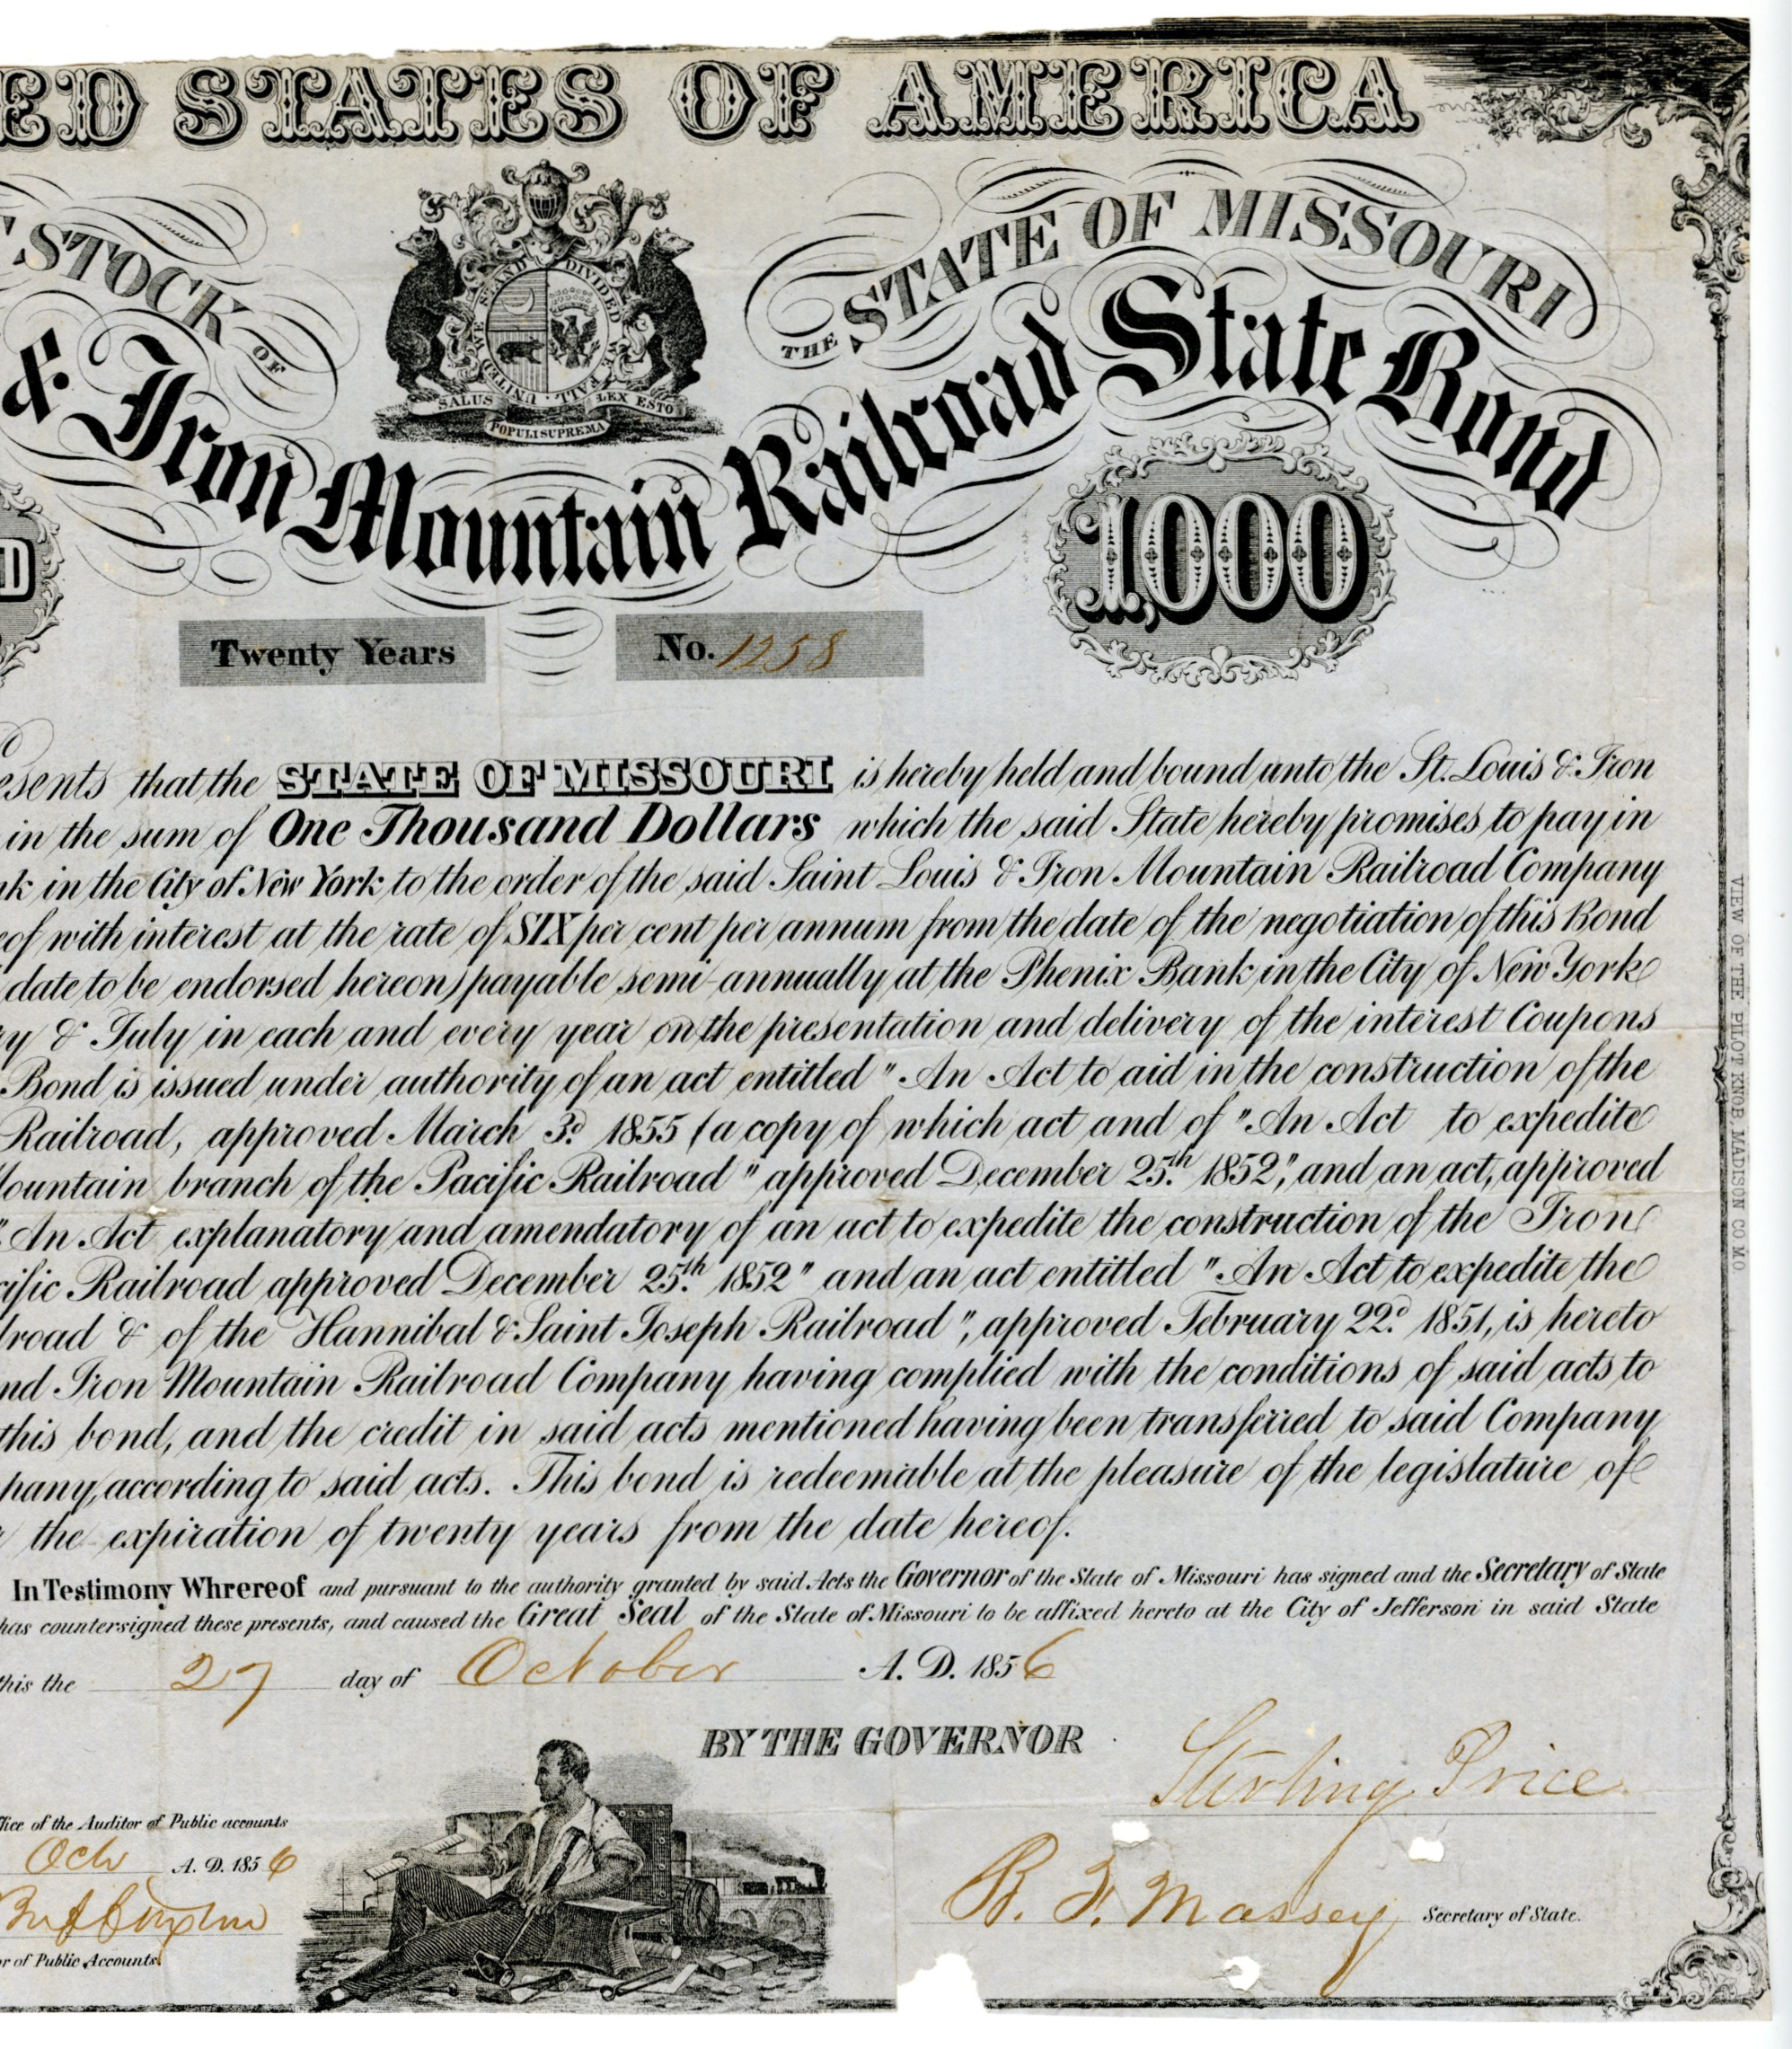 ED STATES OF AMERICA
STOCK OF
THE STATE OF MISSOURI
& Iron Mountain Railroad State Bond
UNITED WE STAND DIVIDED WE FALL
SALUS POPULI SUPREMA LEX ESTO
D
1,000
Twenty Years
No. 1258
esents that the STATE OF MISSOURI is hereby held and bound unto the St. Louis & Iron
in the sum of One Thousand Dollars which the said State hereby promises to pay in
nk in the City of New York to the order of the said Saint Louis & Iron Mountain Railroad Company
eof with interest at the rate of SIX per cent per annum from the date of the negotiation of this Bond
date to be endorsed hereon) payable semi-annually at the Phenix Bank in the City of New York
ry & July in each and every year on the presentation and delivery of the interest Coupons
Bond is issued under authority of an act entitled "An Act to aid in the construction of the
Railroad, approved March 3d. 1855 (a copy of which act and of "An Act to expedite
Mountain branch of the Pacific Railroad" approved December 25th. 1852," and an act, approved
"An Act explanatory and amendatory of an act to expedite the construction of the Iron
cific Railroad approved December 25th. 1852" and an act entitled "An Act to expedite the
lroad & of the Hannibal & Saint Joseph Railroad", approved February 22d. 1851, is hereto
nd Iron Mountain Railroad Company having complied with the conditions of said acts to
this bond, and the credit in said acts mentioned having been transferred to said Company
pany, according to said acts. This bond is redeemable at the pleasure of the legislature of
r the expiration of twenty years from the date hereof.
In Testimony Whrereof and pursuant to the authority granted by said Acts the Governor of the State of Missouri has signed and the Secretary of State
has countersigned these presents, and caused the Great Seal of the State of Missouri to be affixed hereto at the City of Jefferson in said State
this the 27 day of October A. D. 1856
BY THE GOVERNOR
Sterling Price
ffice of the Auditor of Public accounts
Oct A. D. 1856
or of Public Accounts.
R. F. Massey Secretary of State.
VIEW OF THE PILOT KNOB, MADISON CO MO